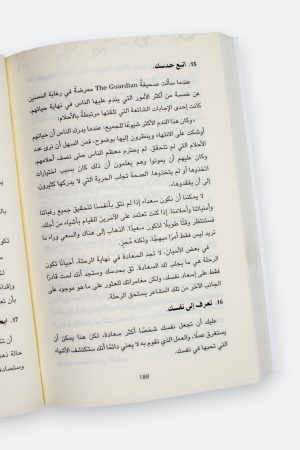 15. اتبع حدسك.
عندما سألت صحيفة The Guardian ممرضة في رعاية المسنين
عن خمسة من أكثر الأمور التي يندم عليها الناس في نهاية حياتهم،
كانت إحدى الإجابات الشائعة التي تلقتها مرتبطة بالأحلام.
«وكان هذا الندم الأكثر شيوعًا للجميع: عندما يدرك الناس أن حياتهم
أوشكت على الانتهاء، وينظرون إليها بوضوح، فمن السهل أن نرى عدد
الأحلام التي لم تتحقق. لم يحترم معظم الناس حتى نصف أحلامهم،
وكان عليهم أن يموتوا وهم يعلمون أن ذلك كان بسبب اختيارات
اتخذوها أو لم يتخذوها. الصحة تجلب الحرية التي لا يدركها كثيرون،
إلى أن يفقدوها.
لا يمكننا أن نكون سعداء إذا لم نثق بأنفسنا لتحقيق جميع رغباتنا
وأمنياتنا وأحلامنا. إذا كنت تعتمد على الآخرين للقيام بأشياء من أجلك
فستنتظر وقتًا طويلًا لتكون سعيدًا. الذهاب إلى هناك والسعي وراء ما
تريد ليس فقط أمرًا مبهجًا، ولكنه مُجزٍ.
في بعض الأحيان، لا تجد السعادة في نهاية الرحلة. أحيانًا تكون
الرحلة هي ما يجلب لك السعادة. ثق بحدسك وستجد أنك لست قادرًا
فقط على إسعاد نفسك، ولكن مغامراتك للعثور على ما هو موجود على
الجانب الآخر من تلك المشاعر يستحق الرحلة.
16. تعرف إلى نفسك.
عليك أن تجعل نفسك شخصًا أكثر سعادة، لكن هذا يمكن أن
يستغرق عملًا، والعمل الذي تقوم به لا يعني دائمًا أنك ستكتشف الأشياء
التي تحبها في نفسك.
188
17. ابد
حالة ذهـ
وستصادفـ